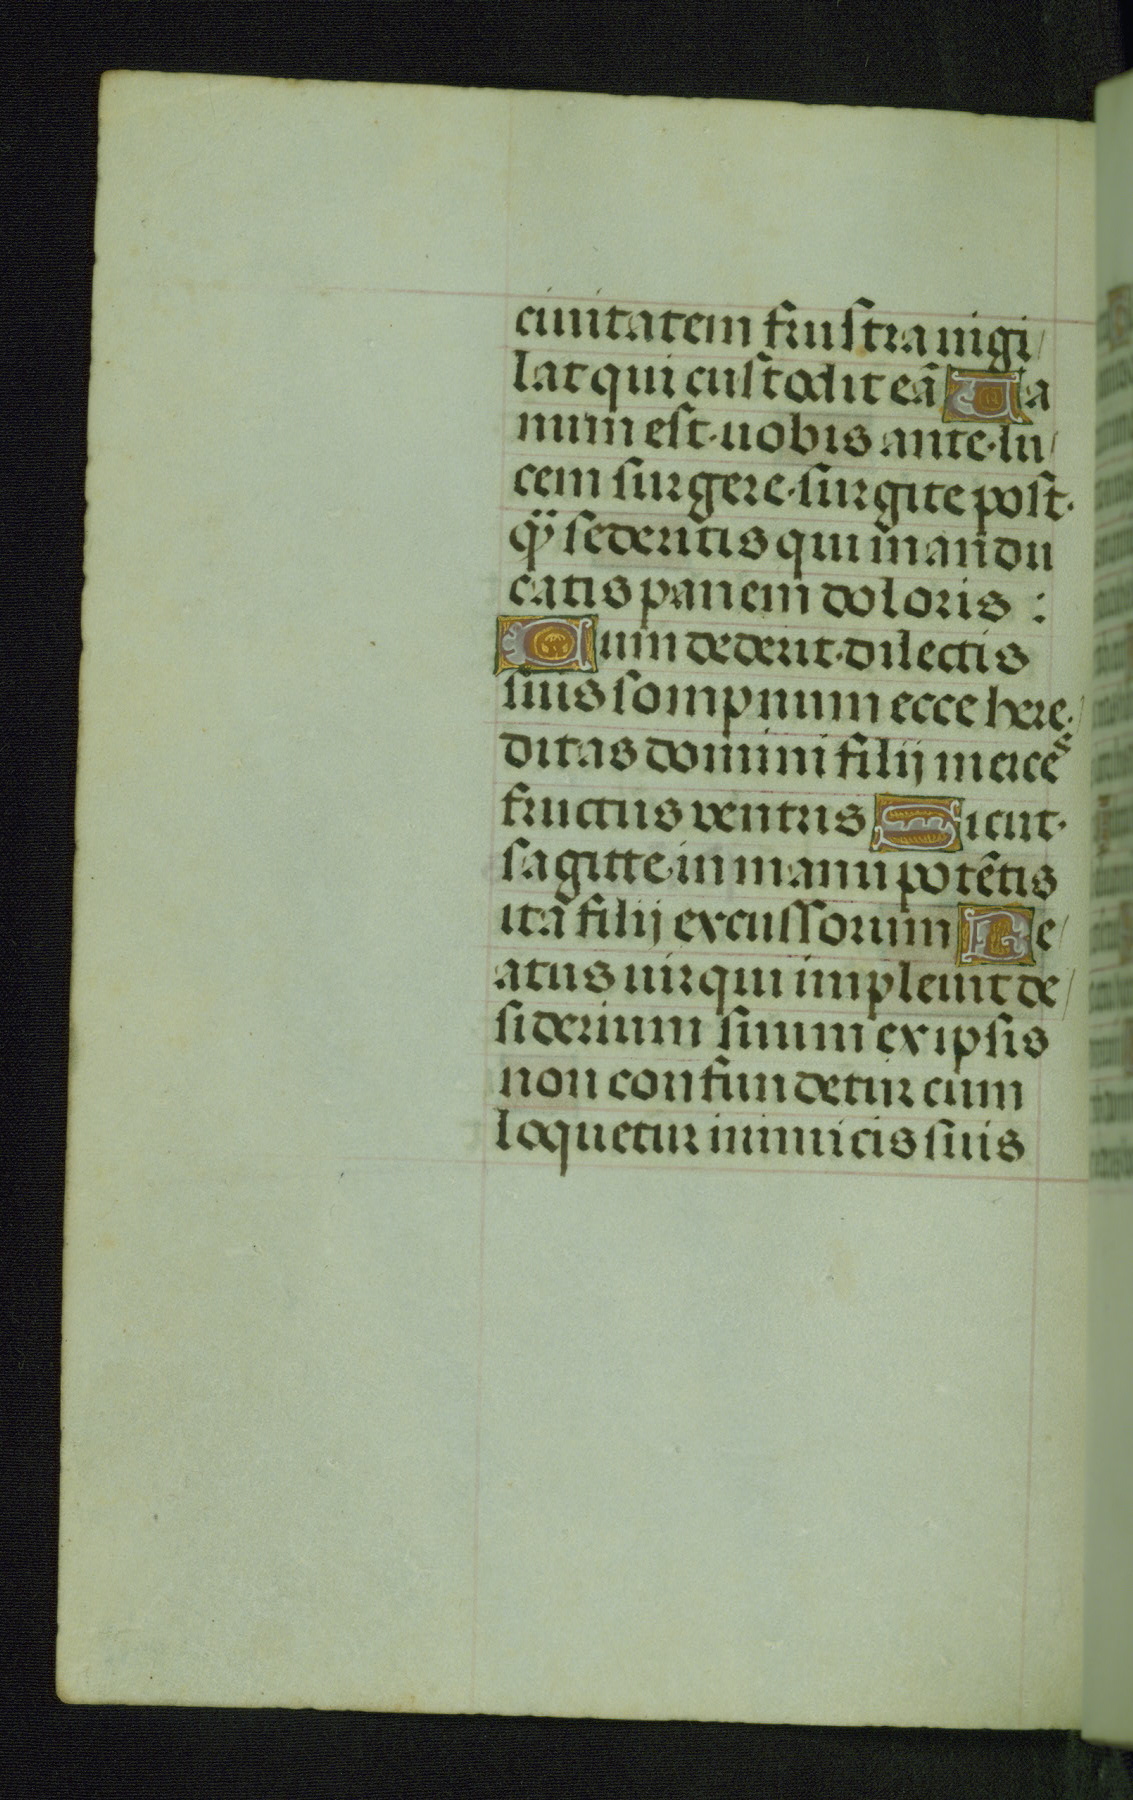 ciuitatem frustra uigi/
lat qui custodit eã Ua
num est uobis ante lu/
cem surgere surgite post
q̃ sederitis qui mandu
catis panem doloris :
Cum dederit dilectis
suis sompnum ecce here/
ditas domini filij merces
fructus ventris Sicut
sagitte in manu potẽtis
ita filij excussorum Be/
atus uir qui impleuit de/
siderium suum ex ipsis
non confundetur cum
loquetur inimicis suis